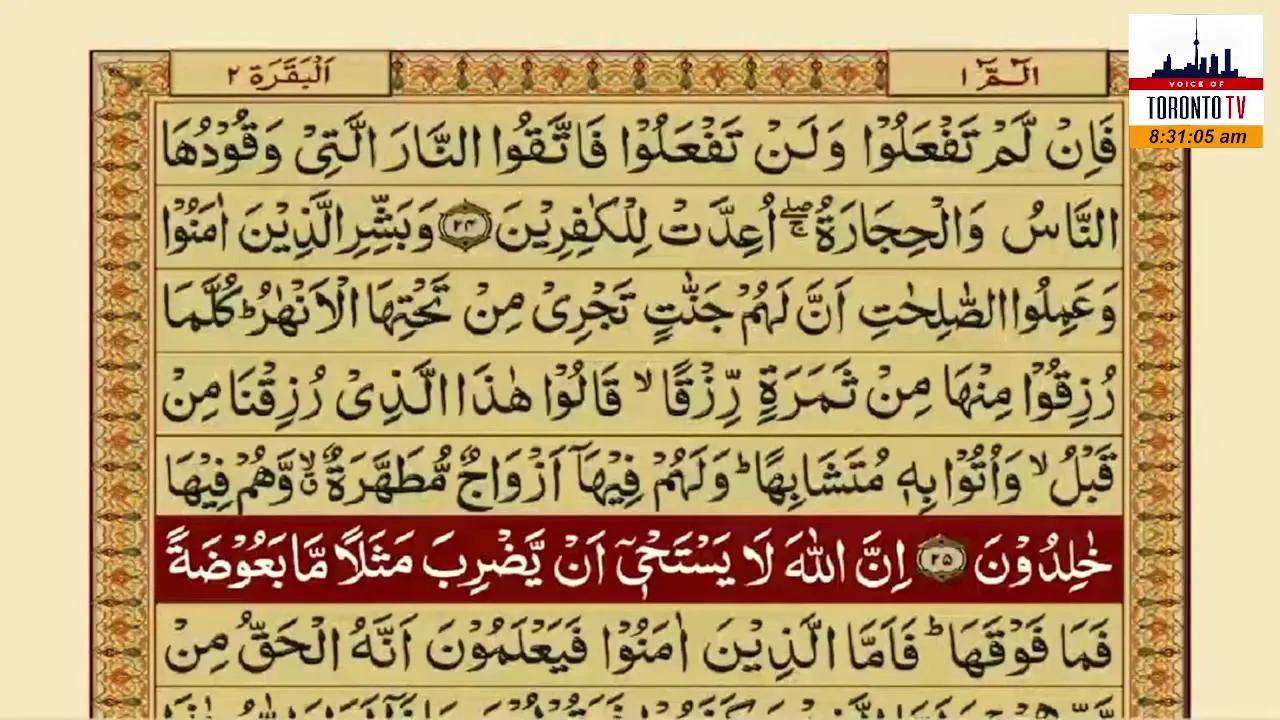 الٓمّٓ ١
اَلْبَقَرَة ٢
VOICE OF
TORONTO TV
8:31:05 am
فَاِنْ لَّمْ تَفْعَلُوْا وَلَنْ تَفْعَلُوْا فَاتَّقُوا النَّارَ الَّتِىْ وَقُوْدُهَا
النَّاسُ وَالْحِجَارَةُ ۖۚ اُعِدَّتْ لِلْكٰفِرِيْنَ ۝۲۴ وَبَشِّرِ الَّذِيْنَ اٰمَنُوْا
وَعَمِلُوا الصّٰلِحٰتِ اَنَّ لَهُمْ جَنّٰتٍ تَجْرِىْ مِنْ تَحْتِهَا الْاَنْهٰرُ ؕ كُلَّمَا
رُزِقُوْا مِنْهَا مِنْ ثَمَرَةٍ رِّزْقًا ۙ قَالُوْا هٰذَا الَّذِىْ رُزِقْنَا مِنْ
قَبْلُ ۙ وَاُتُوْا بِهٖ مُتَشَابِهًا ؕ وَلَهُمْ فِيْهَآ اَزْوَاجٌ مُّطَهَّرَةٌ ۙ وَّهُمْ فِيْهَا
خٰلِدُوْنَ ۝۲۵ اِنَّ اللّٰهَ لَا يَسْتَحْىٖٓ اَنْ يَّضْرِبَ مَثَلًا مَّا بَعُوْضَةً
فَمَا فَوْقَهَا ؕ فَاَمَّا الَّذِيْنَ اٰمَنُوْا فَيَعْلَمُوْنَ اَنَّهُ الْحَقُّ مِنْ